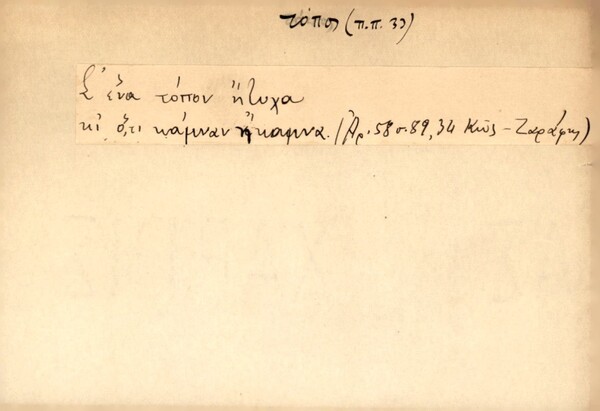 τόπος (π.π. 30)
Σ' ἕνα τόπον ἤτυχα
κι' ὅ,τι κάμναν ἤκαμνα. (Ἀρ. 58 σ. 89, 34 Κῶς - Ζαράφτης)